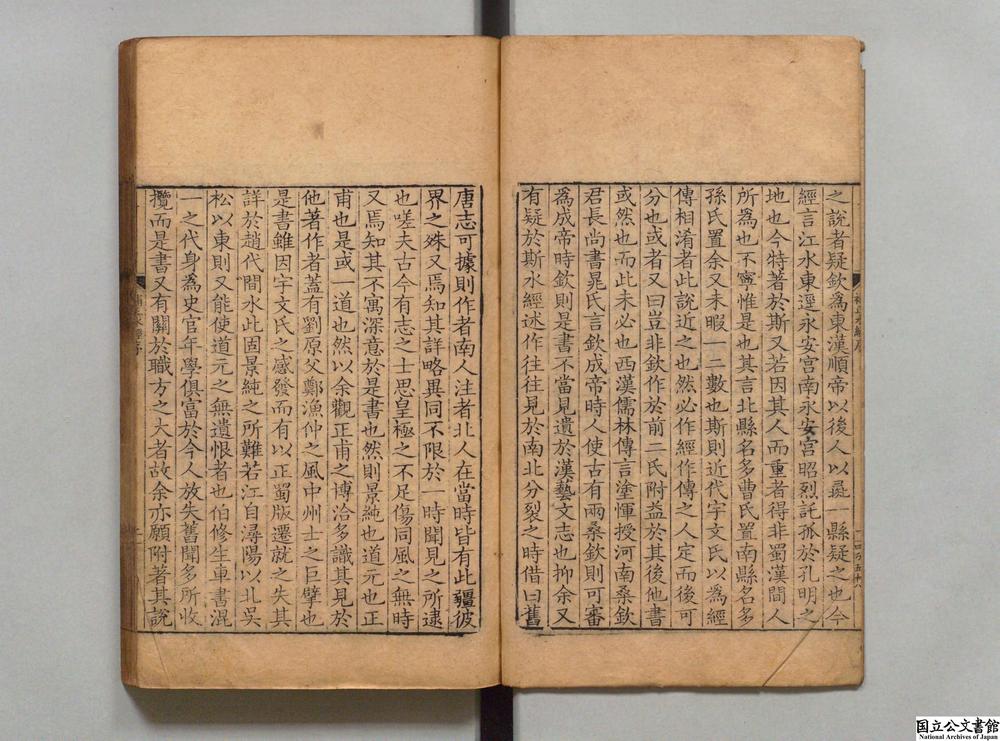 之說者疑欽為東漢順帝以後人以最一縣疑之也今
經言江水東逕永安宮南永安宮昭烈託孤於孔明之
地也今特著於斯又若因其人而重者得非蜀漢間人
所為也不寧惟是也其言北縣名多曹氏置南縣名多
孫氏置余又未暇一二數也斯則近代宇文氏以為經
傳相淆者此說近之也然必作經作傳之人定而後可
分也或者又曰豈非欽作於前二氏附益於其後他書
或然也而此未必也西漢儒林傳言塗惲授河南桑欽
君長尚書晁氏言欽成帝時人使古有兩桑欽則可審
為成帝時欽則是書不當見遺於漢藝文志也抑余又
有疑於斯水經述作往往見於南北分裂之時借曰舊
唐志可據則作者南人注者北人在當時皆有此疆彼
界之殊又焉知其詳略異同不限於一時聞見之所逮
也嗟夫古今有志之士思皇極之不足傷同風之無時
又焉知其不寓深意於是書也然則景純也道元也正
甫也是或一道也然以余觀正甫之博洽多識其見於
他著作者蓋有劉原父鄭漁仲之風中州士之巨擘也
是書雖因宇文氏之感發而有以正蜀版遷就之失其
詳於趙代間水此固景純之所難若江自潯陽以北吳
松以東則又能使道元之無遺恨者也伯修生車書混
一之代身為史官年學俱富於今人放失舊聞多所收
攬而是書又有關於職方之大者故余亦願附著其說
国立公文書館
National Archives of Japan